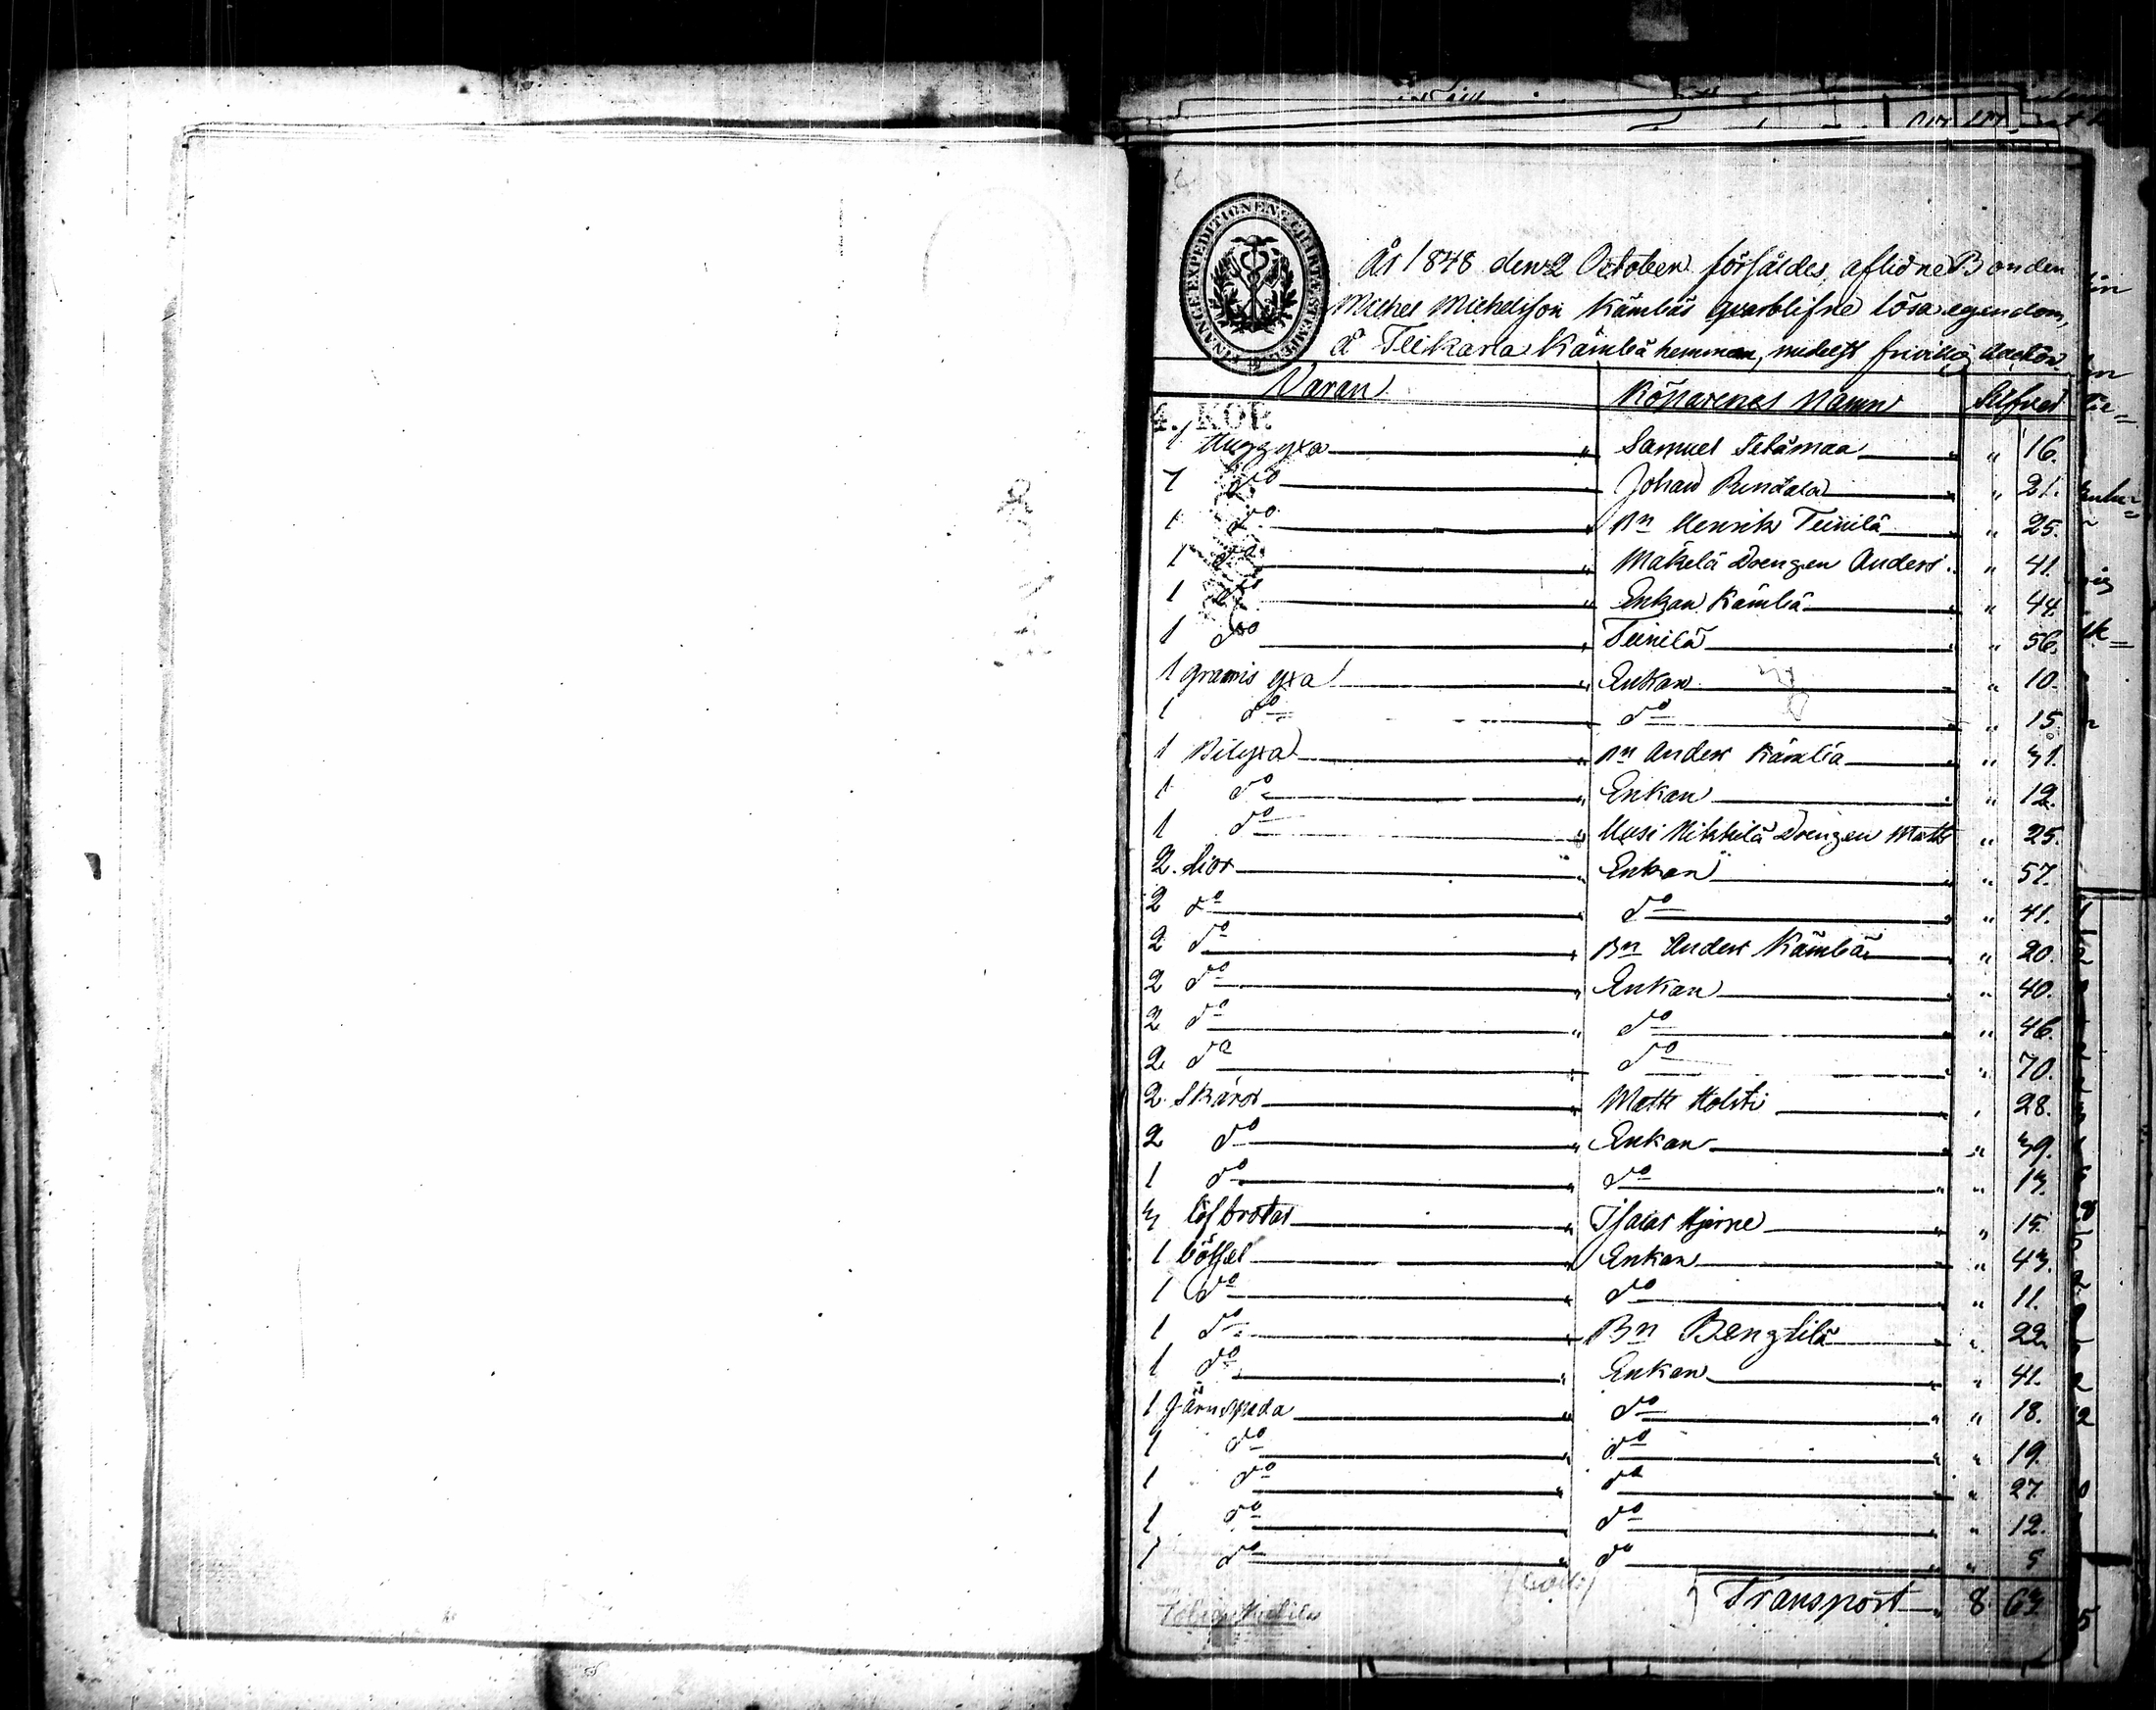 FINANCE EXPEDITIONENS CHARTÆ STEMPEL
År 1848 den 2 October försåldes aflidne Bonden
Michel Michelsson Kämbäs qvarblifne lösa egendom,
å Teikarla Kämbä hemman, medelst frivillig Auction
Varan Köparenas Namn Silfver
4. KOP.
1 Huggyxa " Samuel Selämaa " " 16.
1 do Johan Rindala " " 21.
1 do " Bn Henrik Teinilä " " 25.
1 do " Mäkelä Drengen Anders " 41.
1 do " Enkan Kämbä " " 44.
1 do " Teinilä " " 56.
1 yxa " Enkan " " 10.
1 do do " " 15.
1 Bilyxa " Bn Anders Kämbä " " 31.
1 do " Enkan " " 12.
1 do " Uusi Mikkilä Drengen Matts " 25.
2. Liar " Enkan " " 57.
2 do " do " " 41.
2 do " Bn Anders Kämbä " " 20.
2 do " Enkan " " 40.
2 do " do " " 46.
2 do " do " " 70.
2. Skäror " Matts Holsti " " 28.
2 do " Enkan " " 39.
1 do " do " " 13.
3 " Isaias Hjerpe " " 15.
1 " Enkan " " 43.
1 do " do " " 11.
1 do " Bn Bengtilä " " 22.
1 do " Enkan " " 41.
1 Järnspada " do " " 18.
1 do " do " " 19.
1 do " do " " 27.
1 do " do " " 12.
1 do " do " " 5
Transport " 8. 63